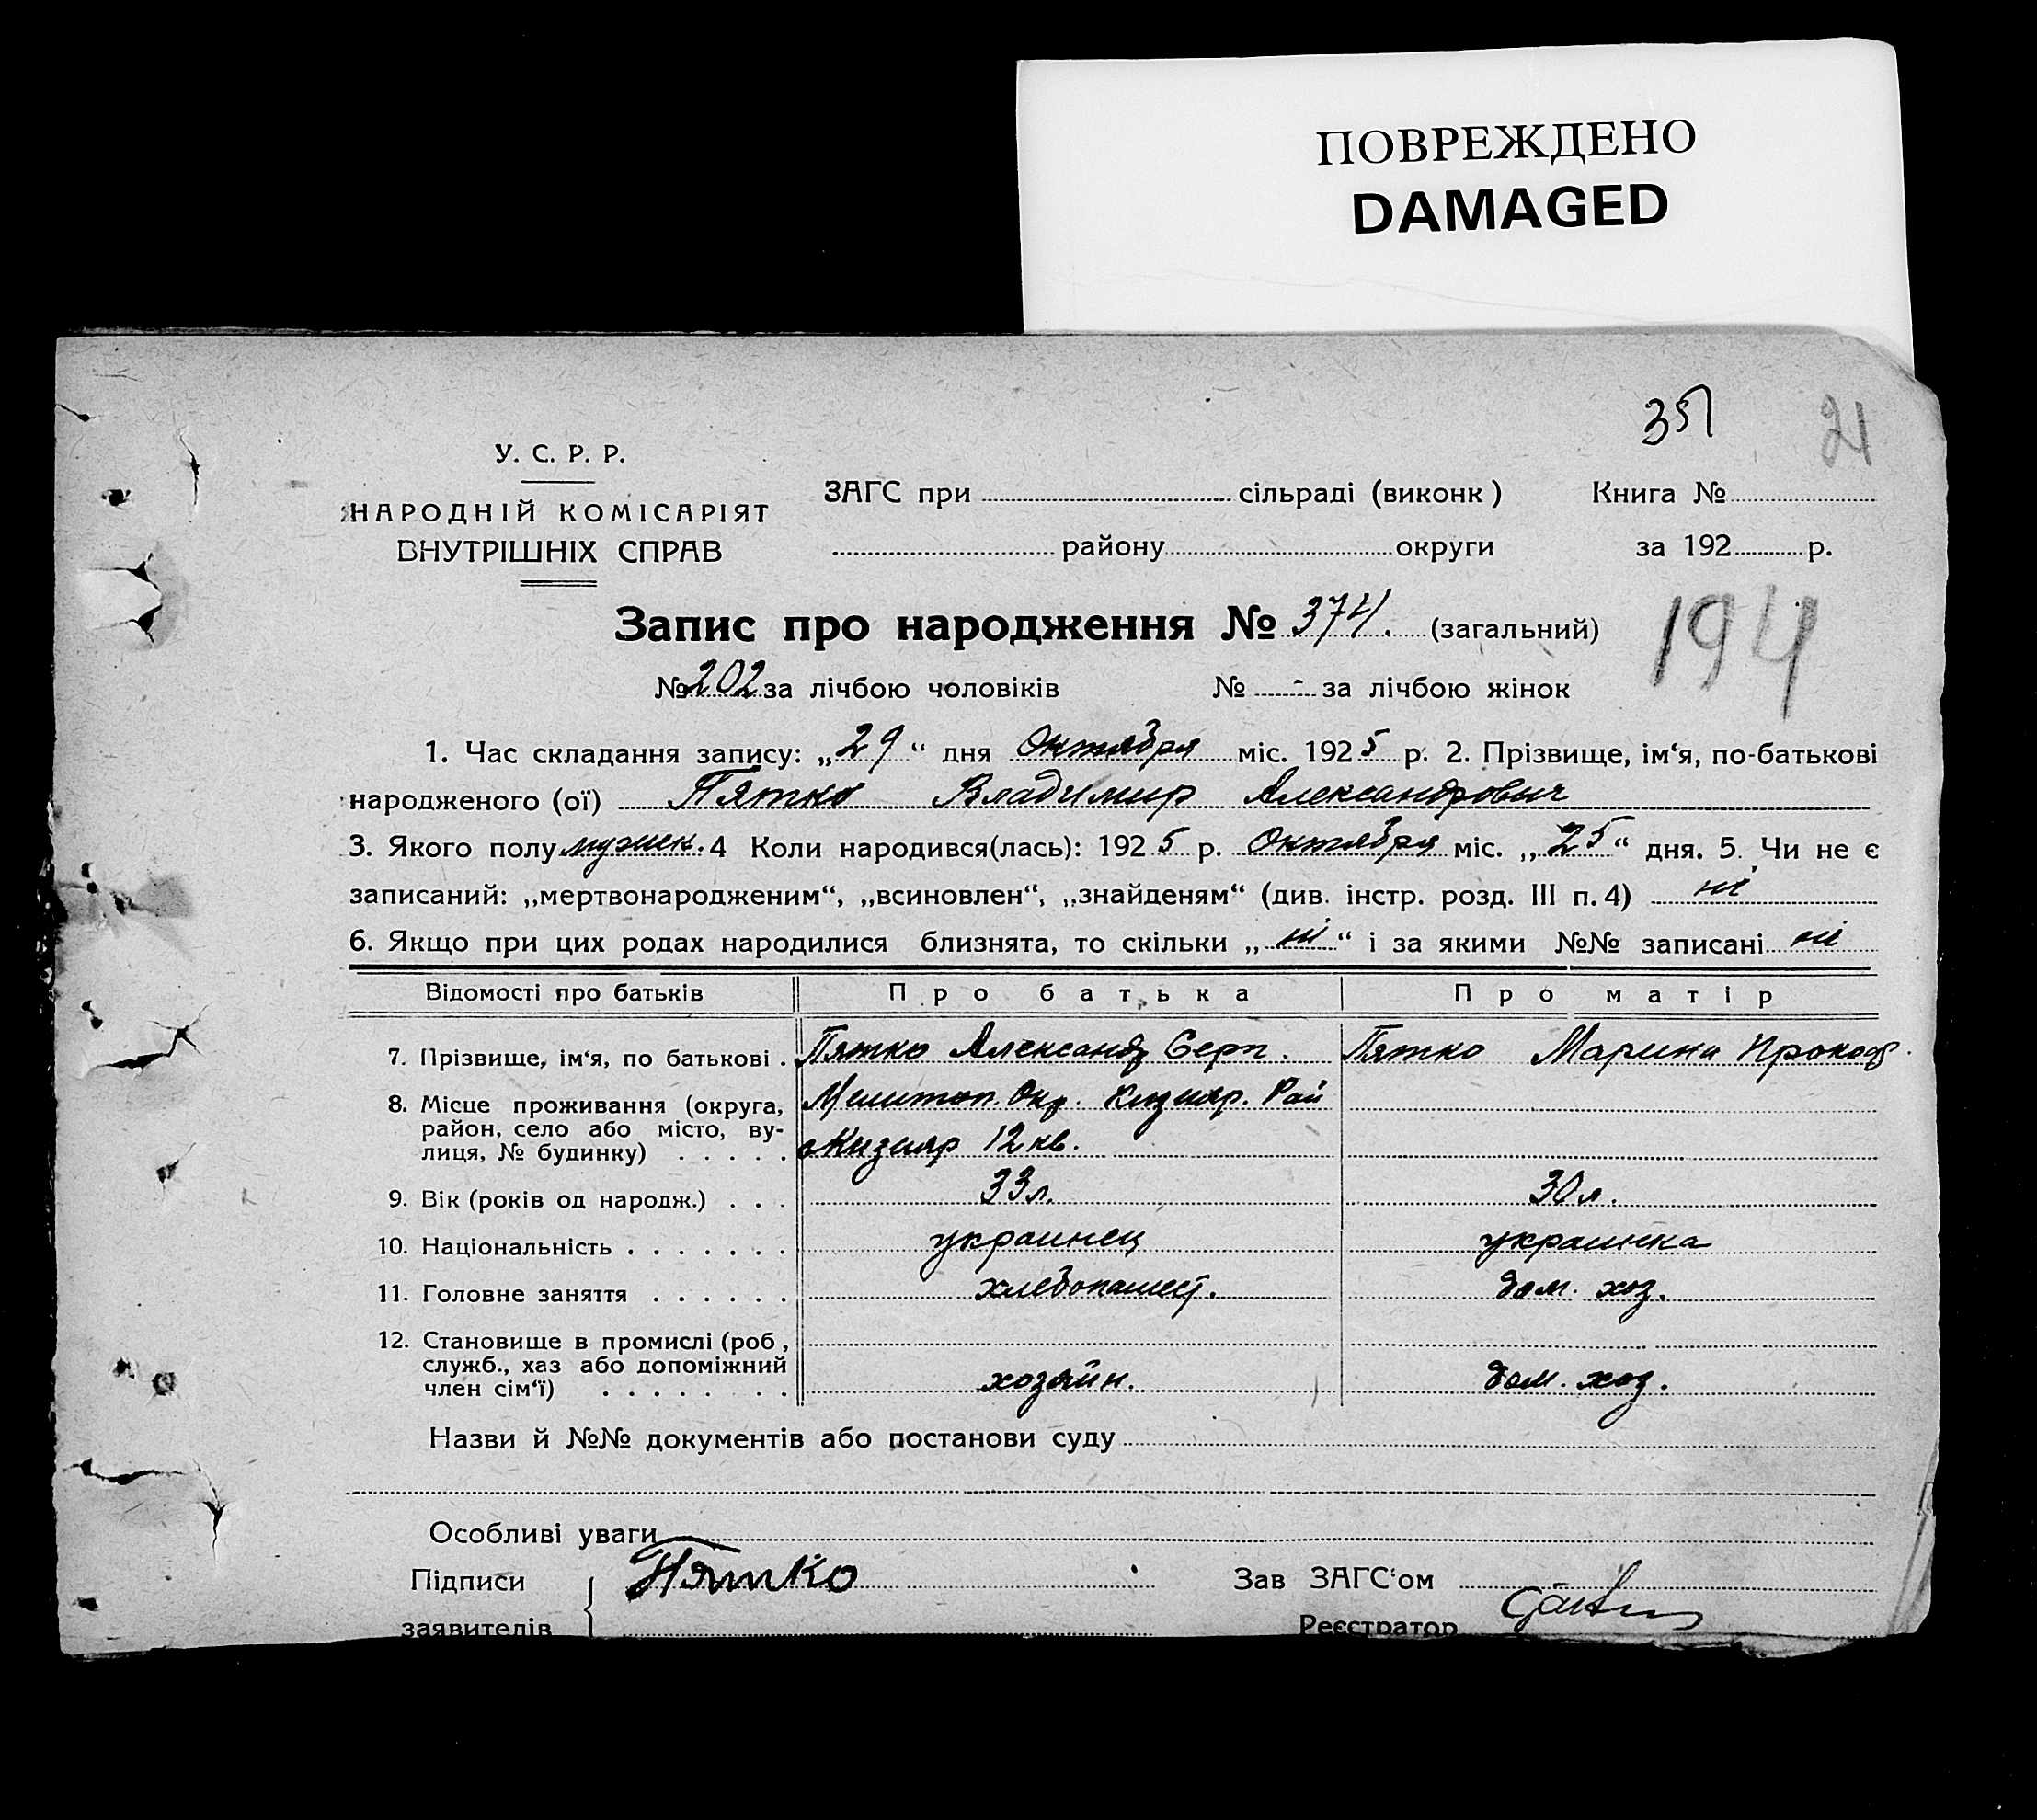 ПОВРЕЖДЕНО
DAMAGED
351 21
У. С. Р. Р.
НАРОДНІЙ КОМІСАРІЯТ
ВНУТРІШНІХ СПРАВ
ЗАГС при сільраді (виконк) Книга №
району округи за 192 р.
Запис про народження № 374. (загальний) 194
№ 202 за лічбою чоловіків № - за лічбою жінок
1. Час складання запису: „29“ дня Октября міс. 1925 р. 2. Прізвище, ім‘я, по-батькові
народженого (ої) Пятко Владимир Александрович
3. Якого полу мужск. 4 Коли народився(лась): 1925 р. Октября міс. „25“ дня. 5. Чи не є
записаний: „мертвонародженим“, „всиновлен“, „знайденям“ (див. інстр. розд. III п. 4) ні
6. Якщо при цих родах народилися близнята, то скільки „ні“ і за якими №№ записані ні
Відомості про батьків Про батька Про матір
7. Прізвище, ім‘я, по батькові . Пятко Александр Серг. Пятко Марина Прокоф.
8. Місце проживання (округа, Мелитоп. Окр. Кизияр. Рай
район, село або місто, ву-
лиця, № будинку) . . . . . Кизияр 12 кв.
9. Вік (років од народж.) . . . 33 л. 30 л.
10. Національність . . . . . . . украинец украинка
11. Головне заняття . . . . . . хлебопашест. дом. хоз.
12. Становище в промислі (роб ,
служб., хаз або допоміжний
член сім‘ї) . . . . . . . хозяин. дом. хоз.
Назви й №№ документів або постанови суду
Особливі уваги
Підписи Пятко Зав ЗАГС‘ом
заявителів Реєстратор